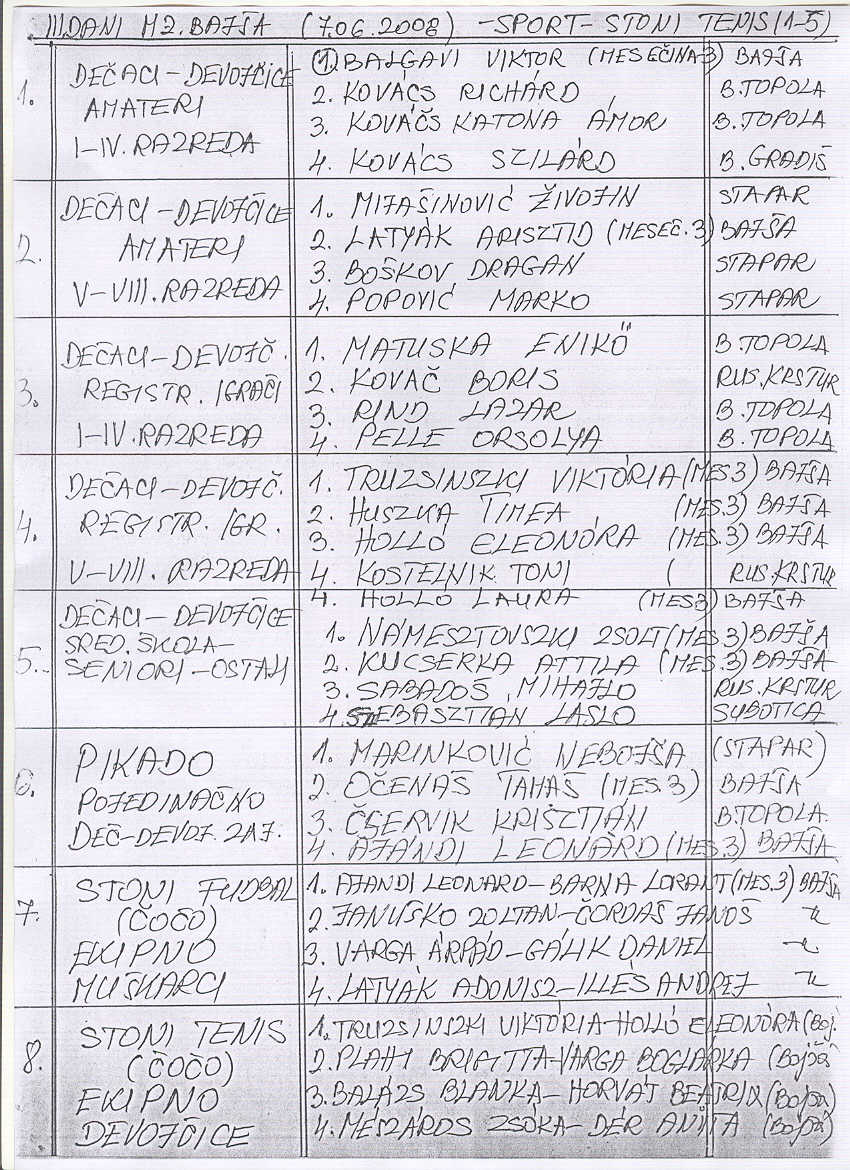 III DANI MZ. BAJŠA (7.06.2008) -SPORT- STONI TENIS (1-5)
1. DEČACI-DEVOJČICE
AMATERI
I-IV. RAZREDA
1. BALGAVI VIKTOR (MESEČINA-3) BAJŠA
2. KOVÁCS RICHÁRD B.TOPOLA
3. KOVÁČS KATONA ÁMOR B.TOPOLA
4. KOVÁCS SZILÁRD B.GRADIŠ
2. DEČACI-DEVOJČICE
AMATERI
V-VIII. RAZREDA
1. MIJAŠINOVIĆ ŽIVOJIN STAPAR
2. LATYÁK ARISZTID (MESEČ.3) BAJŠA
3. BOŠKOV DRAGAN STAPAR
4. POPOVIĆ MARKO STAPAR
3. DEČACI-DEVOJČ.
REGISTR. IGRAČI
I-IV. RAZREDA
1. MATUSKA ENIKŐ B.TOPOLA
2. KOVAČ BORIS RUS.KRSTUR
3. RIND LAZAR B.TOPOLA
4. PELLE ORSOLYA B.TOPOLA
4. DEČACI-DEVOJČ.
REGISTR. IGR.
V-VIII. RAZREDA
1. TRUZSINSZKI VIKTÓRIA (MES.3) BAJŠA
2. HUSZKA TIMEA (MES.3) BAJŠA
3. HOLLÓ ELEONÓRA (MES.3) BAJŠA
4. KOSTELNIK TONI ( RUS.KRSTUR
4. HOLLÓ LAURA (MES3) BAJŠA
5. DEČACI-DEVOJČICE
SRED. ŠKOLA-
SENIORI-OSTALI
1. NÁMESZTOVSZKI ZSOLT (MES.3) BAJŠA
2. KUCSERKA ATTILA (MES.3) BAJŠA
3. SABADOŠ MIHAJLO RUS.KRSTUR
4. SEBASZTIAN LASLO SUBOTICA
6. PIKADO
POJEDINAČNO
DEČ-DEVOJ. ZAJ.
1. MARINKOVIĆ NEBOJŠA (STAPAR)
2. OČENAŠ TAMAŠ (MES.3) BAJŠA
3. ČSERVIK KRISZTIÁN B.TOPOLA.
4. AJANDI LEONÁRD (MES.3) BAJŠA
7. STONI FUDBAL
(ČOČO)
EKIPNO
MUŠKARCI
1. AJANDI LEONARD-BARNA LORANT (MES.3) BAJŠA
2. JANUŠKO ZOLTAN-ČORDAŠ JANOŠ
3. VARGA ÁRPÁD-GÁLIK DANIEL
4. LATYÁK ADONISZ-ILLÉS ANDREJ
8. STONI TENIS
(ČOČO)
EKIPNO
DEVOJČICE
1. TRUZSINSZKI VIKTÓRIA-HOLLÓ ELEONÓRA (Boj.
2. BRIGITTA-VARGA BOGLÁRKA (Bojsa)
3. BALÁZS BLANKA-HORVÁT BEATRIX (Bojsa)
4. MÉSZÁROS ZSÓKA-DÉR ANITA (Bojsa)